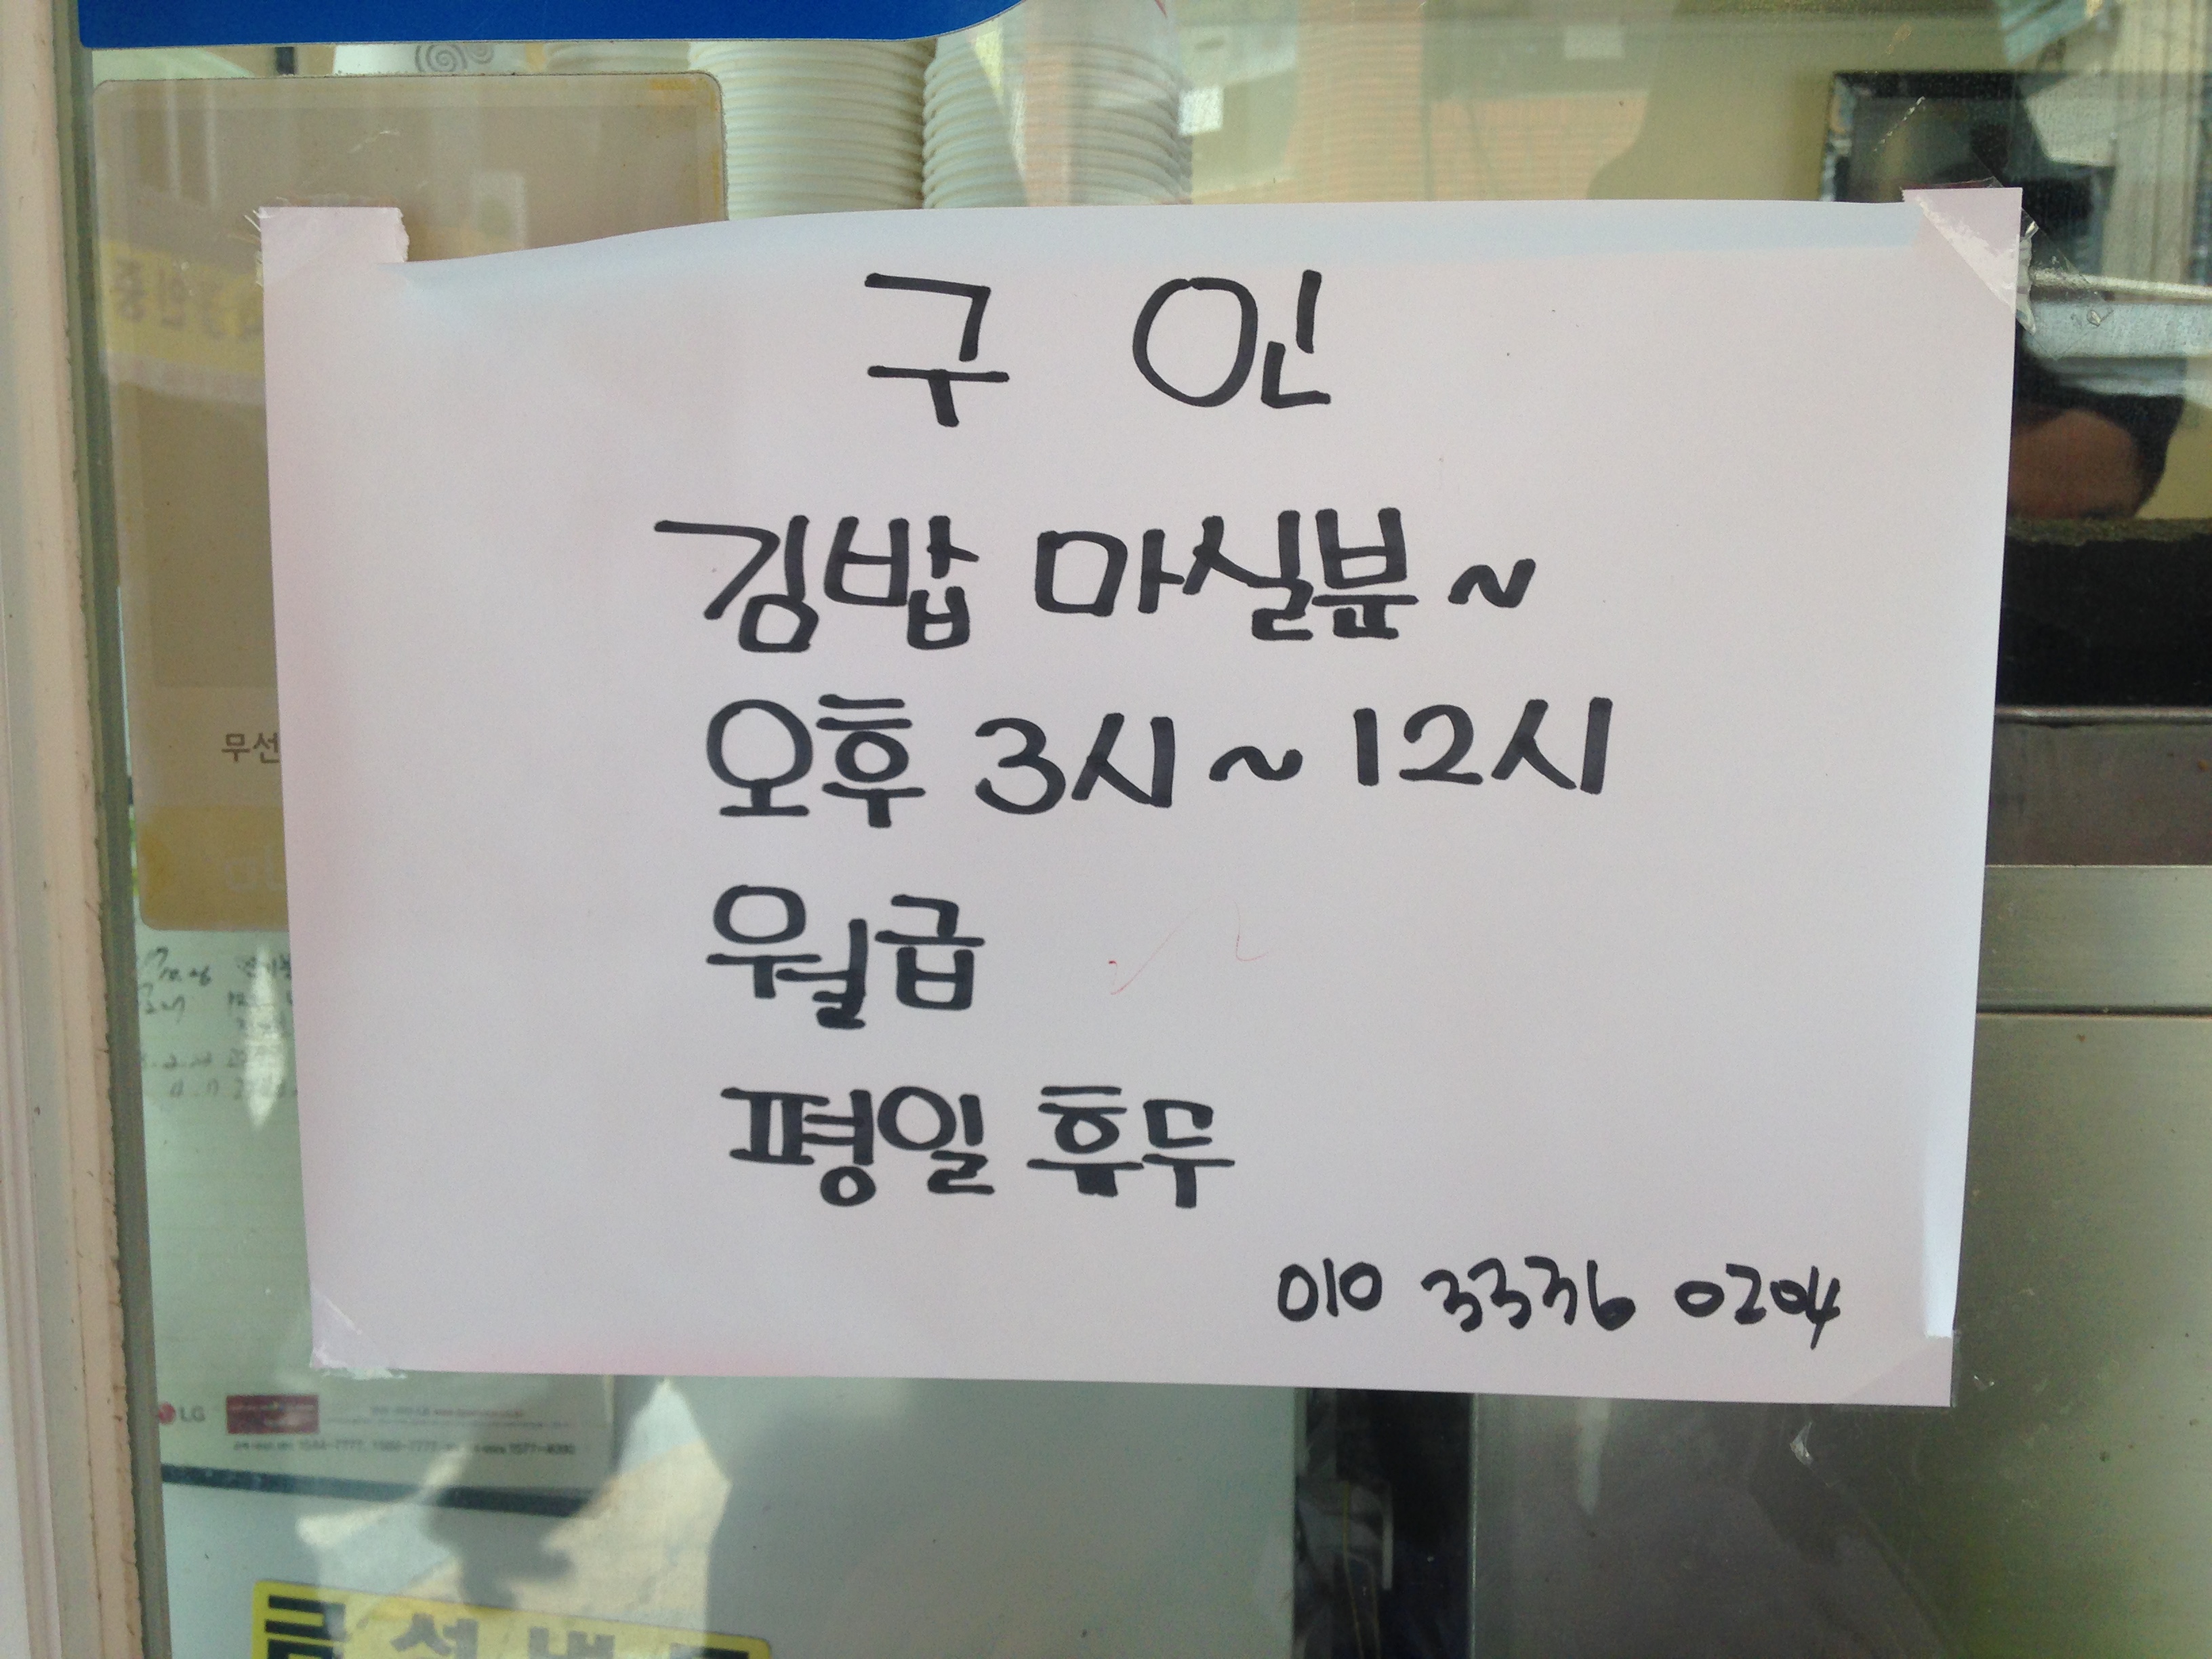 구 인
김밥 마실분~
오후 3시~12시
월급
평일 휴무
010 3336 0204
무선
LG